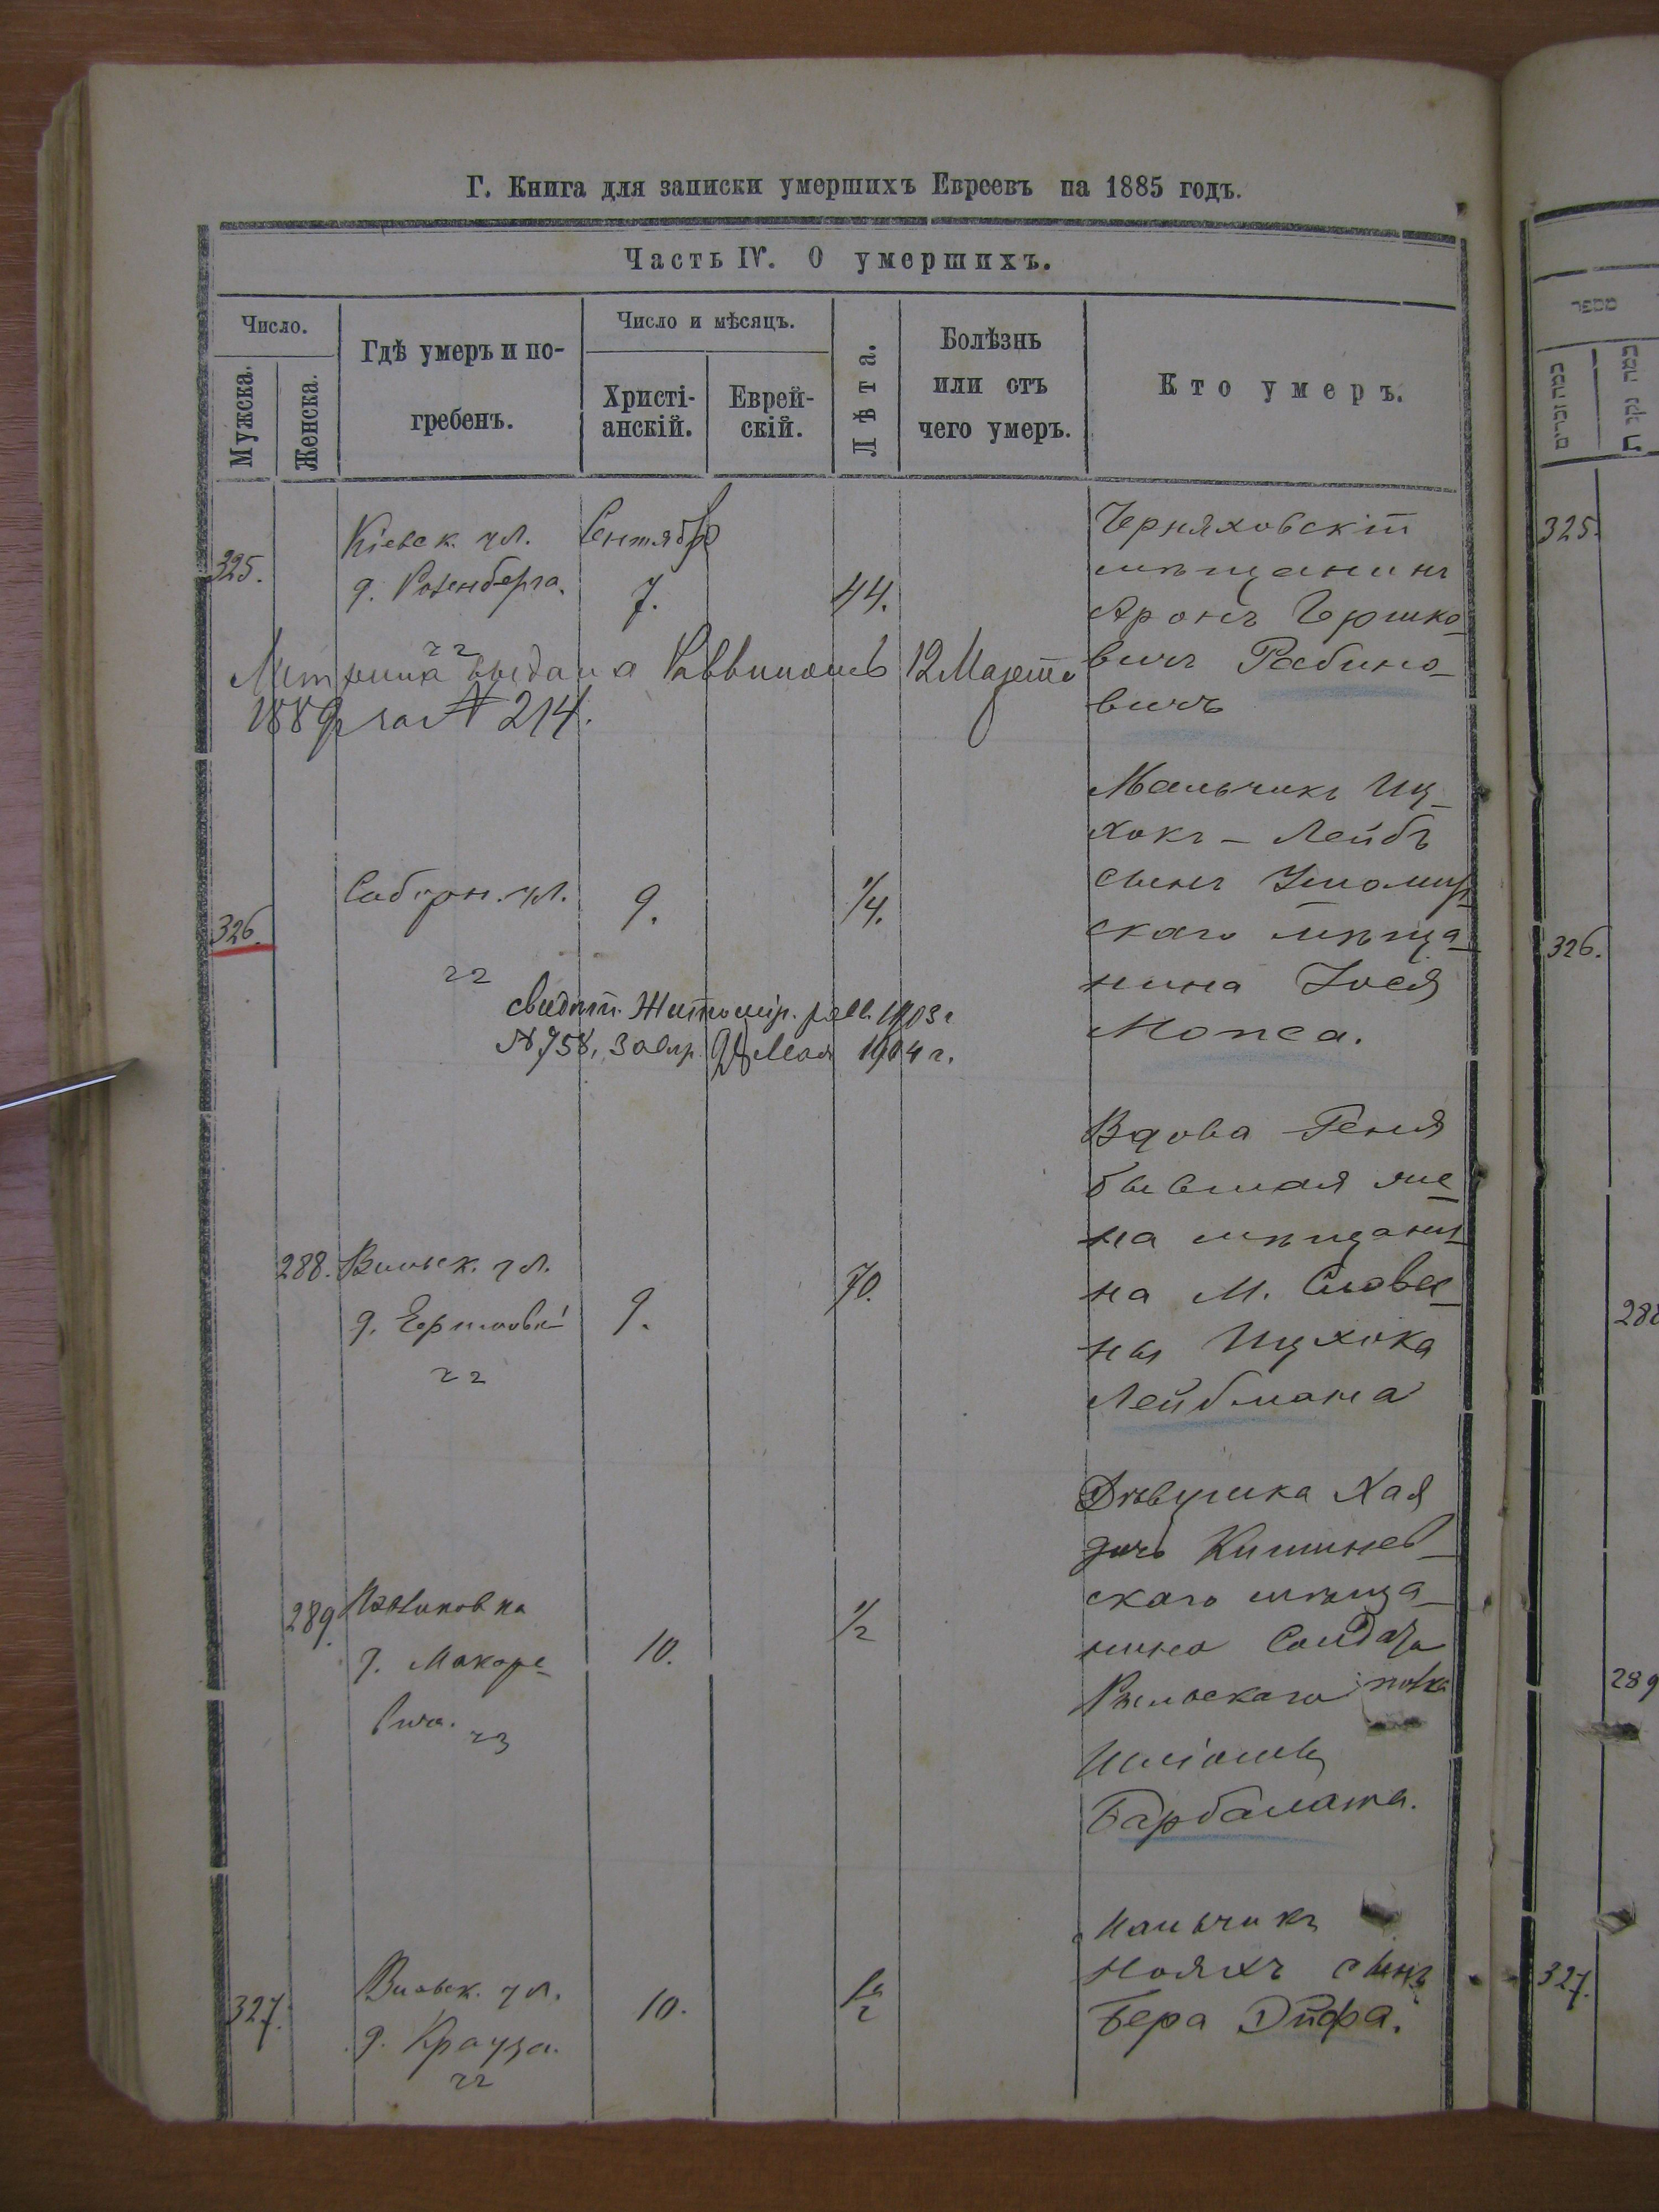 Г. Книга для записки умершихъ Евреевъ на 1885 годъ.
Часть IV. О умершихъ.
Число.
Мужска.
Женска.
Гдѣ умеръ и по-
гребенъ.
Число и мѣсяцъ.
Христі-
анскій.
Еврей-
скій.
Лѣта.
Болѣзнь
или отъ
чего умеръ.
Кто умеръ.
325.
Кіевск. ул.
д. Розенберга.
Сентябр
7.
44.
Черняховскій
мѣщанинъ
Аронъ Гершко-
вичъ Рабино-
вичъ
Метрика выдана Раввиномъ 12 Марта
1889 г за № 214.
326.
Соборн. ул.
9.
1/4.
Мальчикъ Иц-
хокъ - Лейбъ
сынъ Житомир-
скаго мѣща-
нина Іося
Мопса.
свидѣт. Житомір. равв. 1903 г
№ 758,
Мая 1904 г.
288.
Вильск. ул.
9.
70.
Вдова Геня
бывшая же-
на мѣщани-
на М. Слове-
ны Ицхока
Лейбмана
289.
д. Макаре-
вича.
10.
1/2
Дѣвушка Хая
дочь Кишинев-
скаго мѣща-
нина Солдата
Рыльскаго полка
Барбалата.
327.
Вильск. ул.
д. Крауза.
10.
Мальчикъ
Нояхъ сынъ
Бера
מספר
325.
326.
288
289
327.